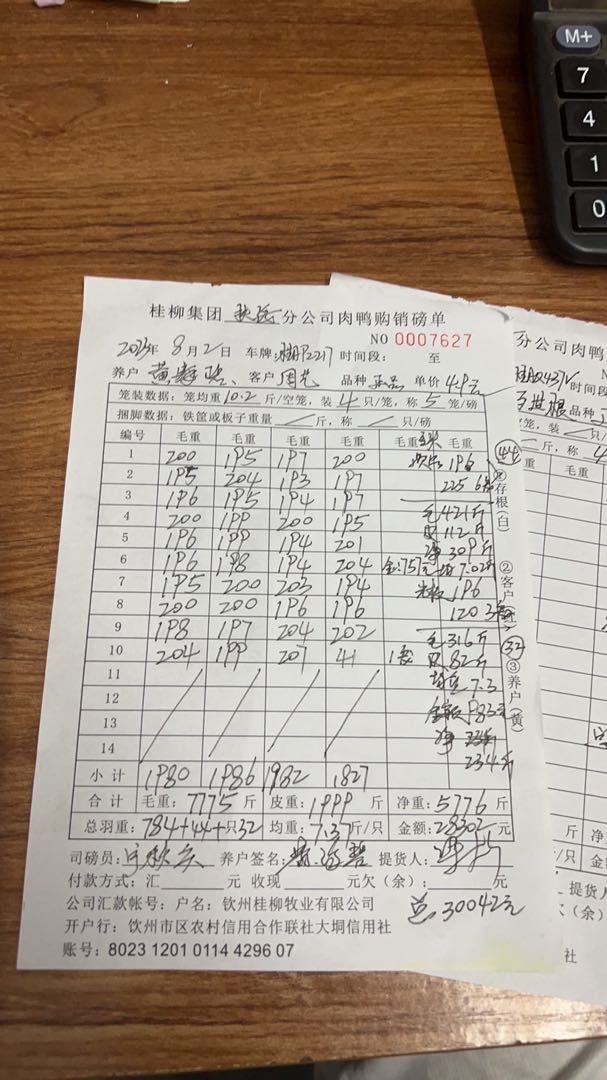 M+
7
4
1
0
桂柳集团 分公司肉鸭购销磅单
NO 0007627
2023年 8月2日 车牌: 2217 时间段: 至
养户 黄 客户 周 品种 正品 单价 4.9元
笼装数据: 笼均重10.2斤/空笼, 装4只/笼, 称5笼/磅
捆脚数据: 铁筐或板子重量／斤, 称／只/磅
编号 毛重 毛重 毛重 毛重 毛重 毛重
1 200 195 197 200 次品 196
2 195 204 193 197 225 6
3 196 195 194 197
4 200 199 200 195 毛421斤
5 196 199 194 201 皮112斤
净309斤
6 196 198 194 204 金:757元 均7.02斤
7 195 200 203 194 196
8 200 200 196 196 120 3
9 198 197 204 202 毛316斤
10 204 199 207 41 皮82斤
11 7.3
12 金额983元
13 净
14 234斤
小计 1980 1986 1982 1827
合计 毛重: 7775斤 皮重: 1999斤 净重: 5776斤
总羽重: 784+44+只32 均重: 7.37斤/只 金额: 28302元
司磅员: 养户签名: 提货人:
付款方式: 汇 元 收现 元欠（余）: 元
公司汇款帐号: 户名: 钦州桂柳牧业有限公司
总30042元
开户行: 钦州市区农村信用合作联社大垌信用社
账号: 8023 1201 0114 4296 07
44
①存根(白)
②客户
32
③养户(黄)
分公司肉鸭
品种
斤, 称 4
重 毛重
斤 净重
/只 金额:
提货人
欠（余）:
社